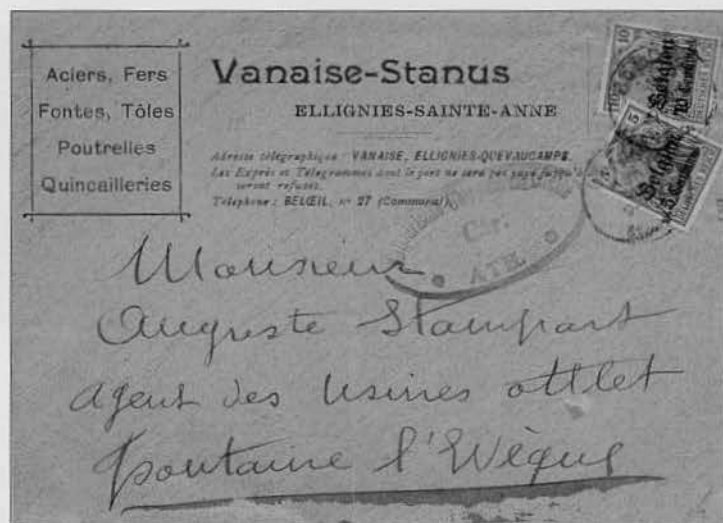 Aciers, Fers
Fontes, Tôles
Poutrelles
Quincailleries
Vanaise-Stanus
ELLIGNIES-SAINTE-ANNE
Adresse télégraphique : VANAISE, ELLIGNIES-QUEVAUCAMPS.
Les Exprès et Télégrammes dont le port ne sera pas payé jusqu'à
seront refusés.
Téléphone : BELŒIL, nº 27 (Communal)
10
Belgien
10 Centimes
5
Belgien
5 Centimes
ATH
Monsieur
Auguste Stampart
agent des Usines ottlet
fontaine l'Evèque